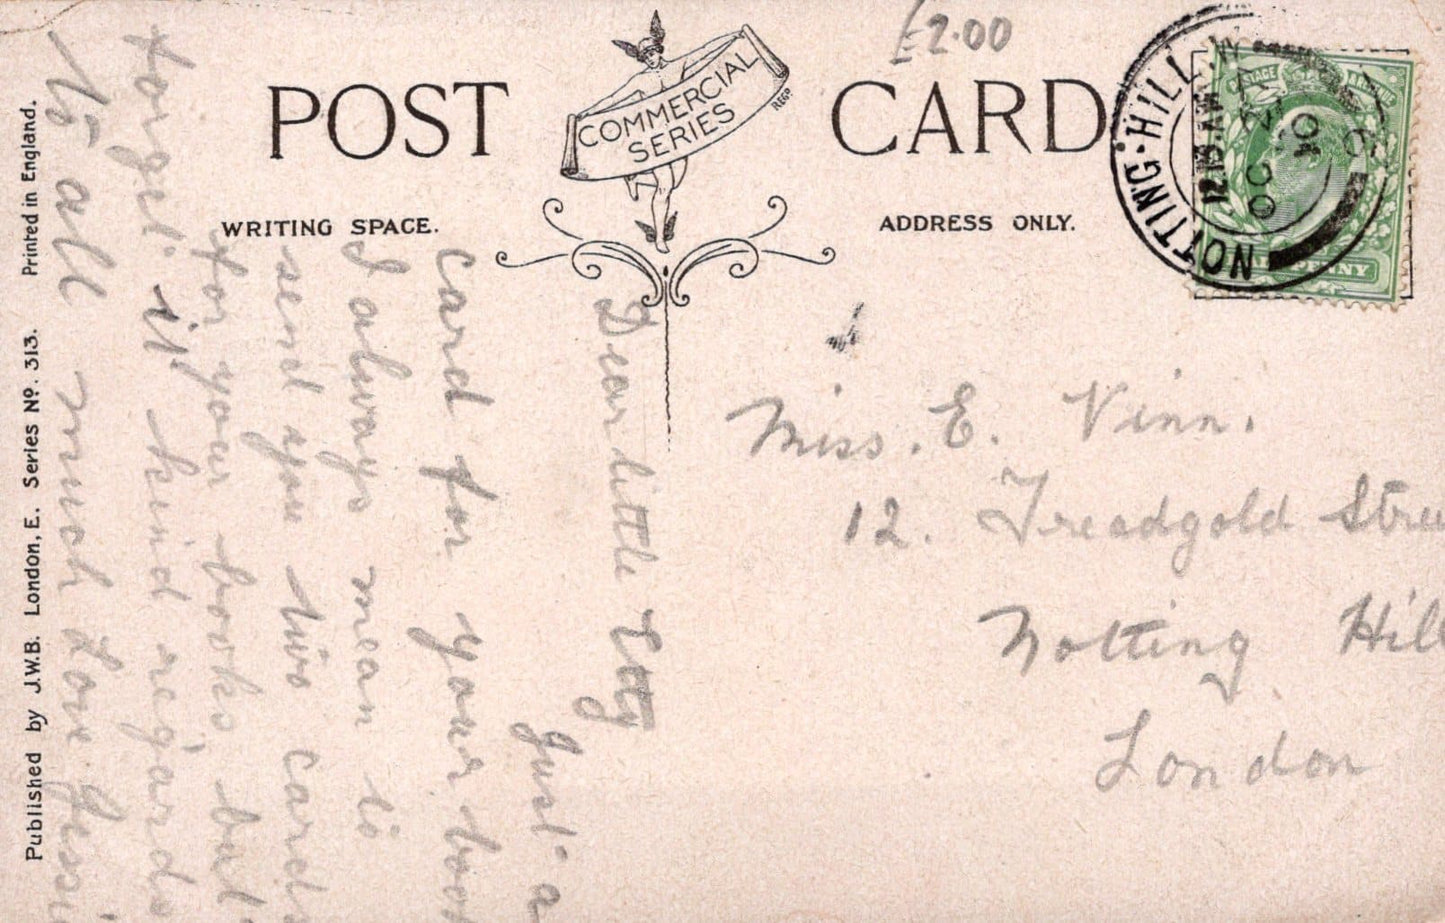 £2.00
POST CARD
COMMERCIAL SERIES
REGD
WRITING SPACE.
ADDRESS ONLY.
NOTTING·HILL
12.15.AM
OC
10
POSTAGE
PENNY
Dear little Etty
Just a
card for your boo
I always mean to
send you two cards
for your books but
forget it kind regards
to all much Love Jessi
Miss. E. Vinn.
12. Treadgold Stree
Notting Hill
London
Published by J.W.B. London, E. Series No. 313. Printed in England.